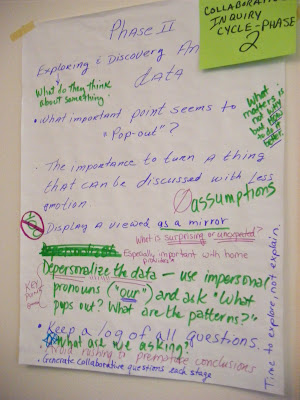 COLLABORATIVE
INQUIRY
CYCLE-PHASE
2
Phase II
Exploring & Discovery An
data
What do they think
about something
What
matters is
not why
but HOW
to do it
better.
• What important point seems to
"Pop-out"?
• The importance to turn a thing
that can be discussed with less
emotion
assumptions
Display a viewed as a mirror
What is surprising or unexpected?
Especially important with home
Depersonalize the data - use impersonal
pronouns ("our") and ask "What
pops out? What are the patterns?"
KEY
Point
• Keep a log of all questions...
What are we asking?
Avoid rushing to premature conclusions
• Generate collaborative questions each stage
Time to explore, not explain